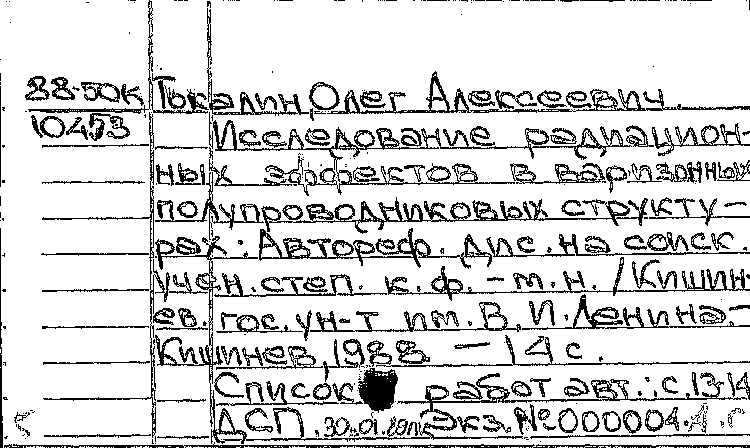 88-50к Токалин, Олег Алексеевич.
10453 Исследование радиацион-
ных эффектов в варизонных
полупроводниковых структу-
рах : Автореф. дис. на соиск.
учен. степ. к. ф. - м. н. / Кишин-
ев. гос. ун-т им. В. И. Ленина. -
Кишинев, 1988. - 14 с.
Список работ авт.: с. 13-14
ДСП. 30.01.89 Экз. №000004.